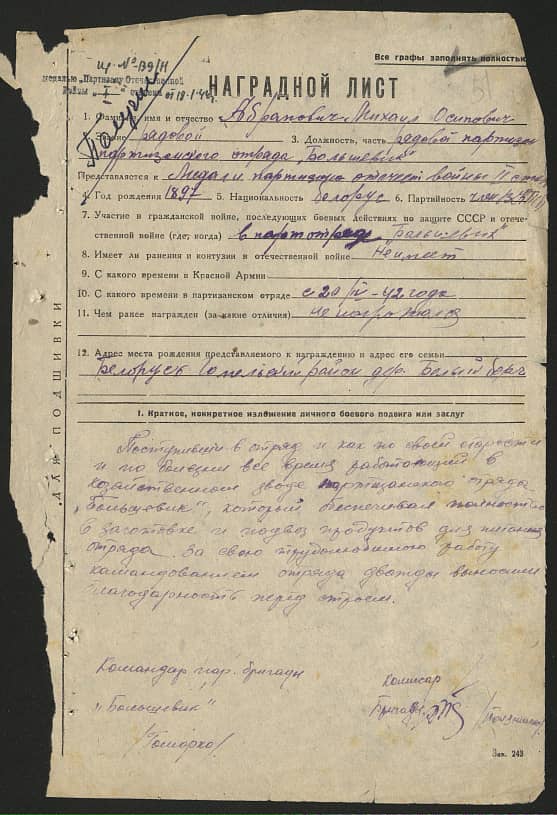 Все графы заполнять полностью
Пр. № 139/Н
медалью „Партизану Отечественной
войны" I степени от 19.1.44г.
НАГРАДНОЙ ЛИСТ
1. Фамилия, имя и отчество Абрапович Михаил Осипович
2. Звание рядовой 3. Должность, часть рядовой партизан
партизанского отряда „Большевик"
Представляется к Медали партизана отечест войны II степ
4. Год рождения 1897 5. Национальность белорус 6. Партийность член
7. Участие в гражданской войне, последующих боевых действиях по защите СССР и отече-
ственной войне (где, когда) в парт отряде „Большевик"
8. Имеет ли ранения и контузии в отечественной войне Не имеет
9. С какого времени в Красной Армии
10. С какого времени в партизанском отряде с 20/IV-42 года
11. Чем ранее награжден (за какие отличия) не награждался
12. Адрес места рождения представляемого к награждению и адрес его семьи
Белорусск Гомельский район дер. Белый
ДЛЯ ПОДШИВКИ
I. Краткое, конкретное изложение личного боевого подвига или заслуг
Поступивши в отряд и как по своей старости
и по болезни все время работающий в
хозяйственном взводе партизанского отряда
„Большевик", который обеспечивал полностью
в заготовке и подвоз продуктов для питания
отряда. За свою трудолюбивую работу
командованием отряда дважды выносили
благодарность перед строем.
Командир пар. бригады
„Большевик"
/Гамарко/
Комисар
Бригады
Зак. 243